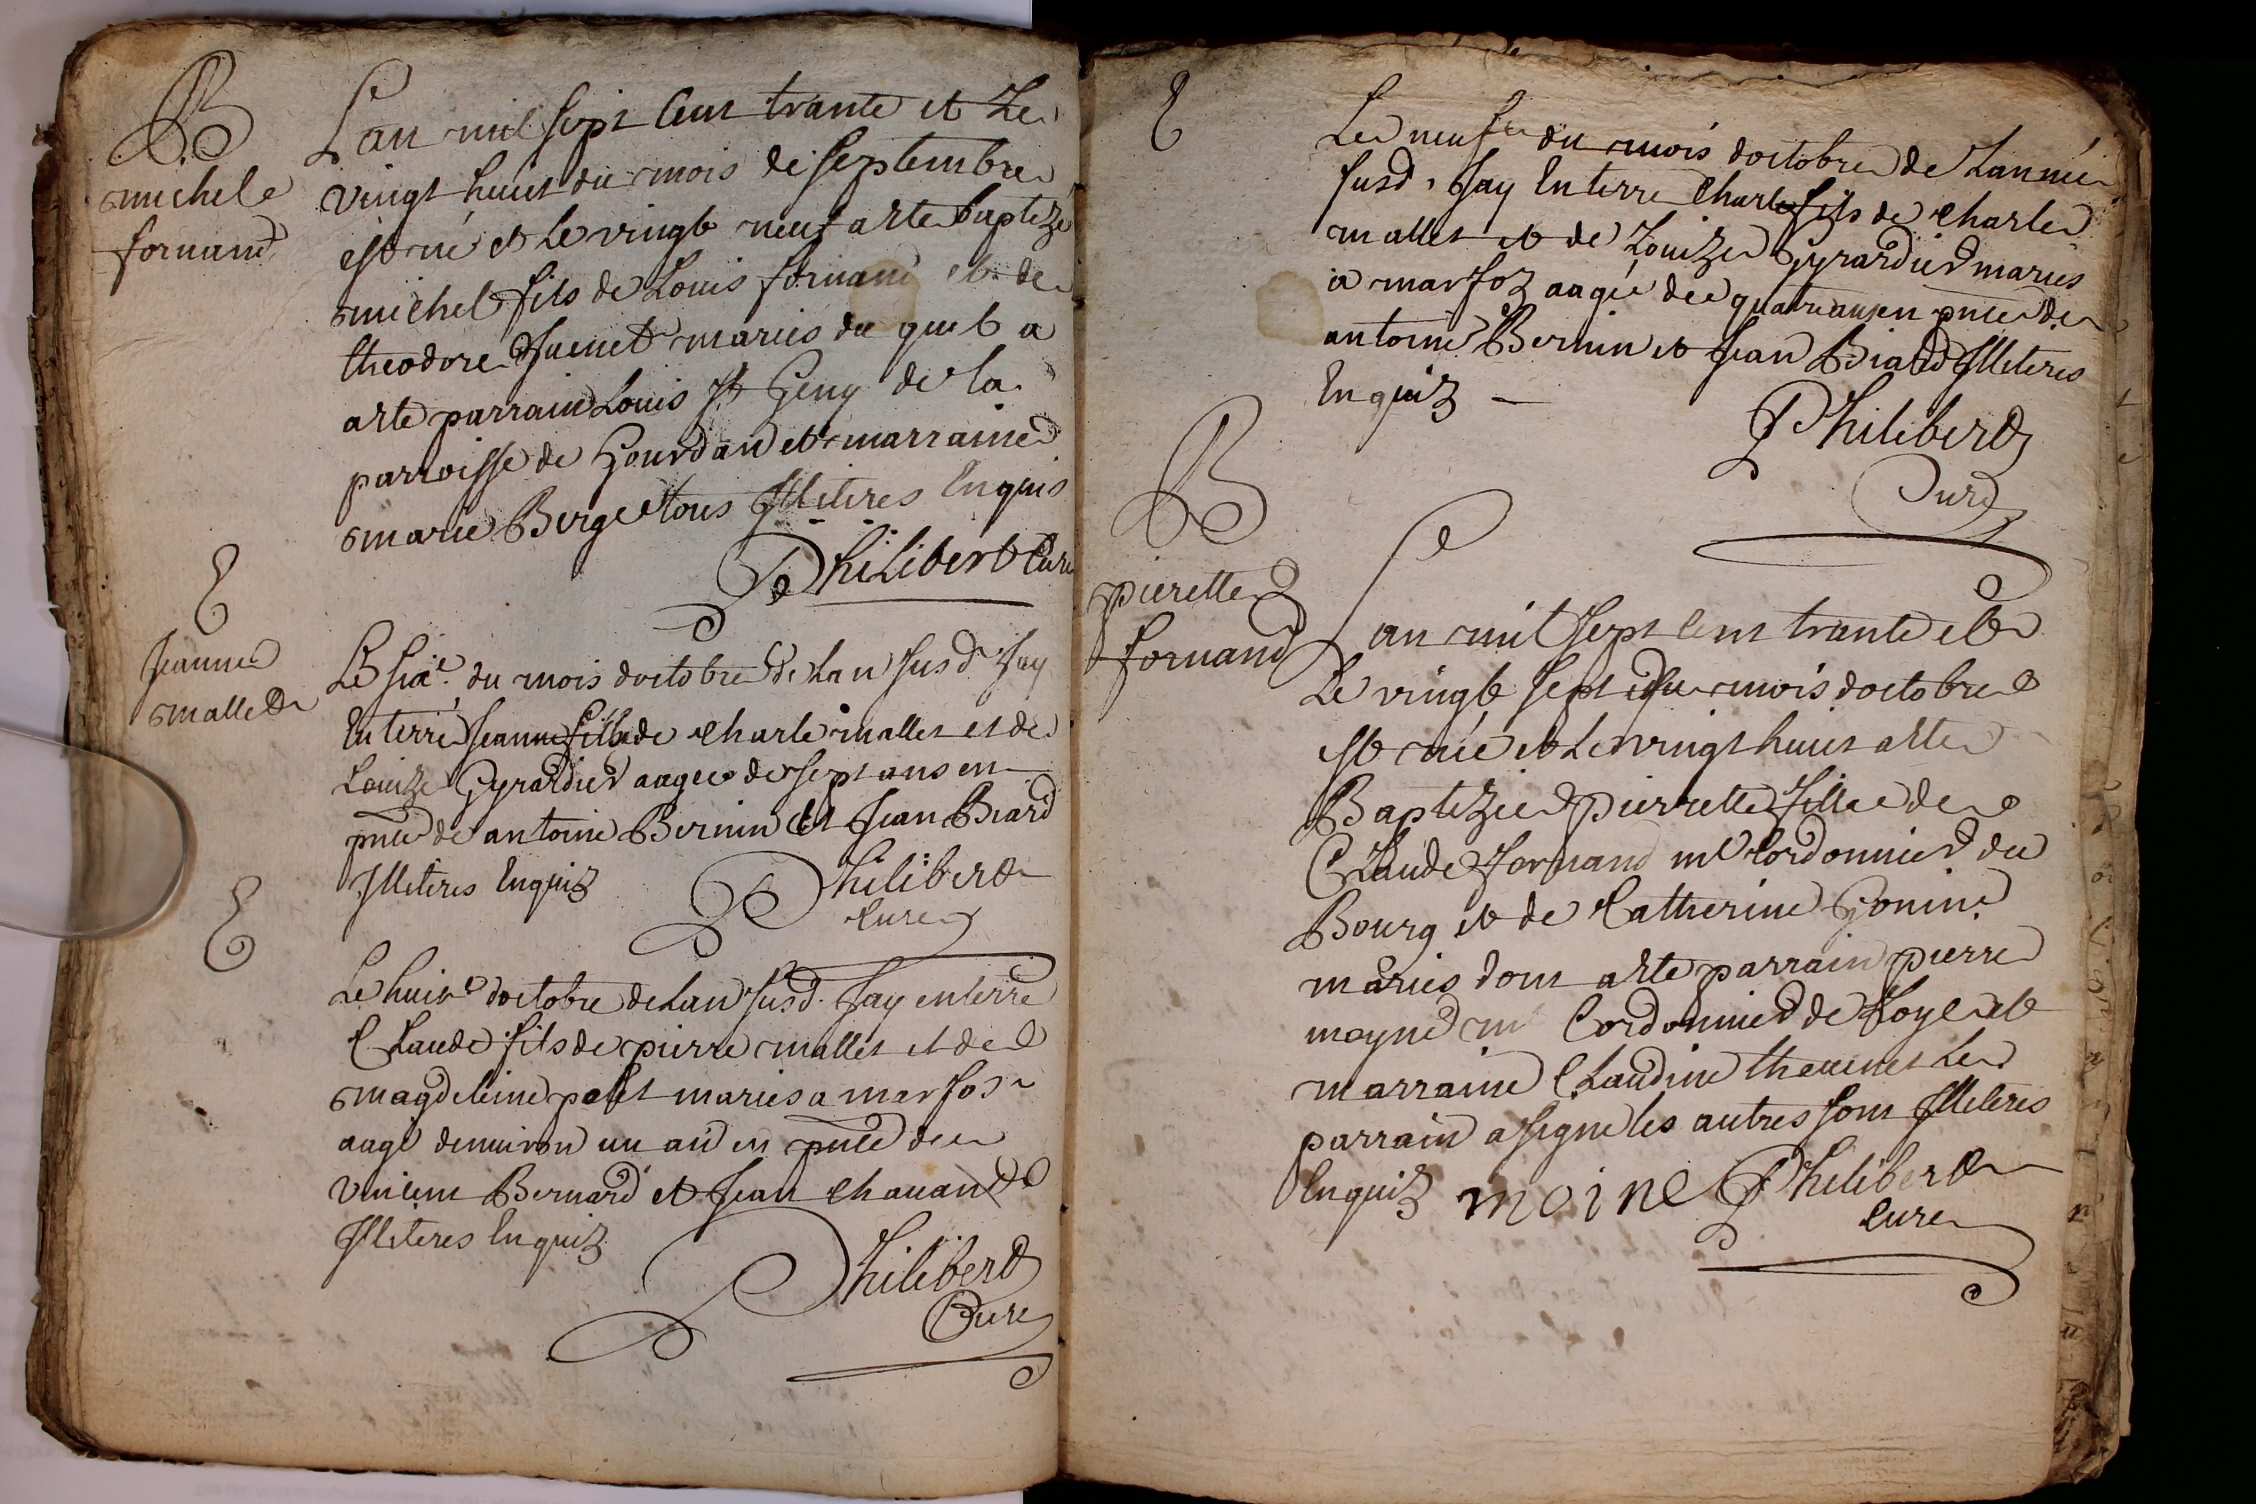 B
michel
fornand
Lan mil sept cent trante et Le
vingt huit du mois de septembre
est né et Le vingt neuf a ete baptizé
michel fils de Louis fornand et de
theodore Juenet mariés du quel a
ete parrain Louis St Geny de la
parroisse de Gourdan et marraine
marie Berge tous Illiteres Enquis
Philibert Curé
E
Jeanne
mallet
Le sixe. du mois doctobre de Lan susd. Jay
Enterré Jeanne fille de Charle mallet et de
Louize Gyrardier aagee de sept ans en
pnce de antoine Bernin et Jean Biard
Illiteres Enquiz
Philibert
Curé
E
Le huite doctobre de Lan susd. Jay enterré
Claude fils de pierre mallet et de
magdeleine petit mariés a marfoz
aagé denuiron un an en pnce de
Vincent Bernard et Jean Chauan
Illiteres Enquiz
Philibert
Curé
E
Le neufe du mois doctobre de Lannée
susd. Jay Enterré Charle fils de Charle
mallet et de Louize Gyrardier mariés
a marfoz aagé de quatre ans en pnce de
antoine Bernin et Jean Biard Illiteres
Enquiz
Philibert
Curé
B
pierette
fornand
Lan mil sept cent trante et
Le vingt sept du mois doctobre
est née et Le vingt huit a ete
Baptizée pierrette fille de
Claude fornand me Cordonnier du
Bourg et de Catherine Gonin
mariés dont a ete parrain pierre
moyne me Cordonnier de Loye et
marraine Claudine theuenet Le
parrain a signe les autres sont Illiteres
Enquiz moine Philibert
Curé